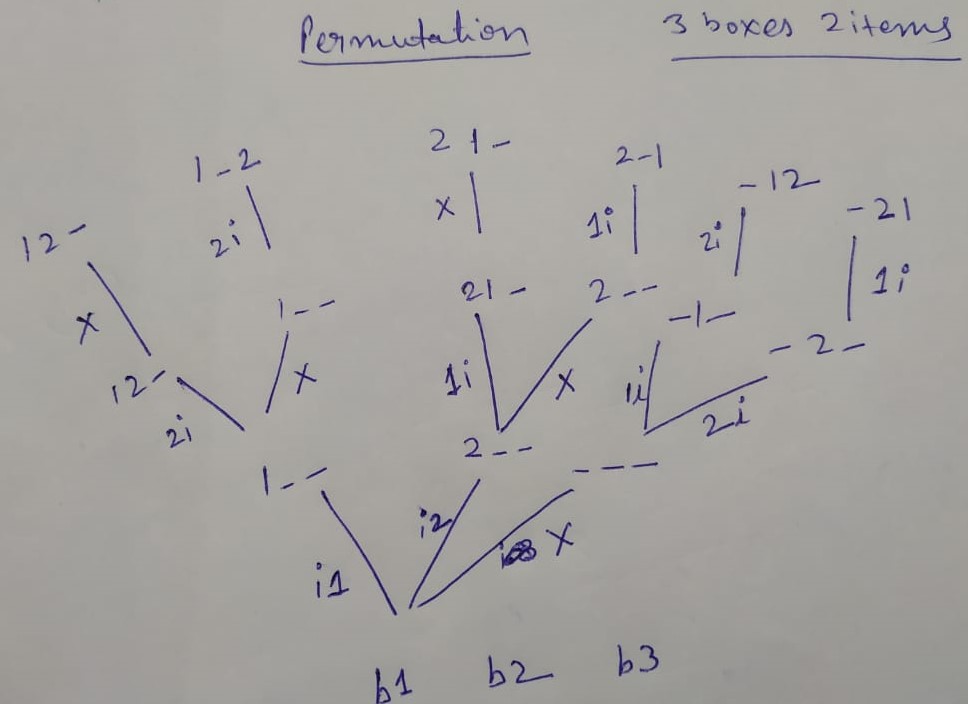 Permutation 3 boxes 2 items
12- 1-2 21- 2-1 -12 -21
x 2i x 1i 2i 1i
12- 1-- 21- 2-- -1- -2-
2i x 1i x 1i 2i
1-- 2-- ---
i1 i2 x
b1 b2 b3